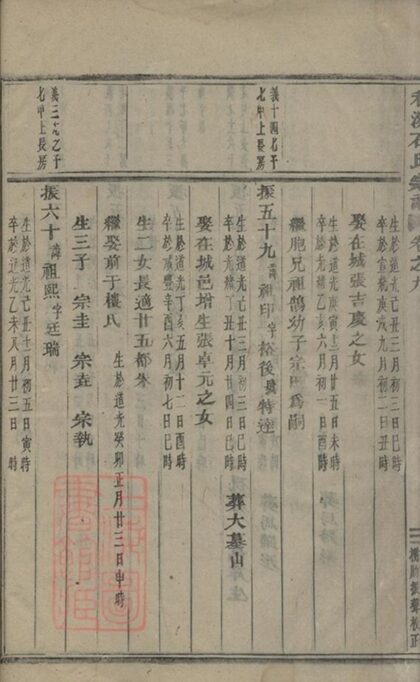 石氏宗譜 卷之九
生於道光己丑三月廿三日巳時
卒於宣統庚戌九月初二日丑時
娶在城張吉慶之女
生於道光庚寅十二月廿五日未時
卒於光緒六月初一日酉時
繼胞兄祖鵠幼子宗田爲嗣
義十四九子
七甲上長房
振五十九諱祖印字松後號特達
生於道光己丑三月廿三日巳時
卒於光緒丁丑十月廿四日巳時
葬大墓山
娶在城邑增生張卓元之女
生於道光丁亥五月十二日酉時
卒於咸豐辛酉六月初七日巳時
生二女長適廿五都朱
繼娶前于樓氏
生於道光癸卯正月廿三日申時
生三子 宗圭 宗垚 宗執
七甲上長房
振六十諱祖熙字廷瑞
生於道光己丑十月初五日寅時
卒於道光乙未八月廿三日時